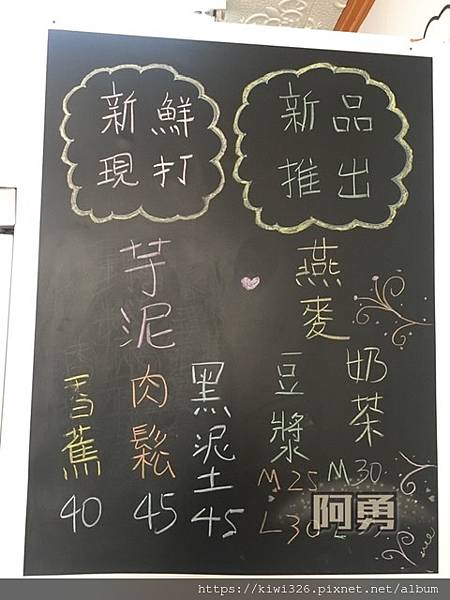 新鮮
現打
芋泥
香蕉
40
肉鬆
45
黑泥土
45
新品
推出
燕麥
豆漿
M25
L30
奶茶
M30
阿勇
https://kiwi326.pixnet.net/album